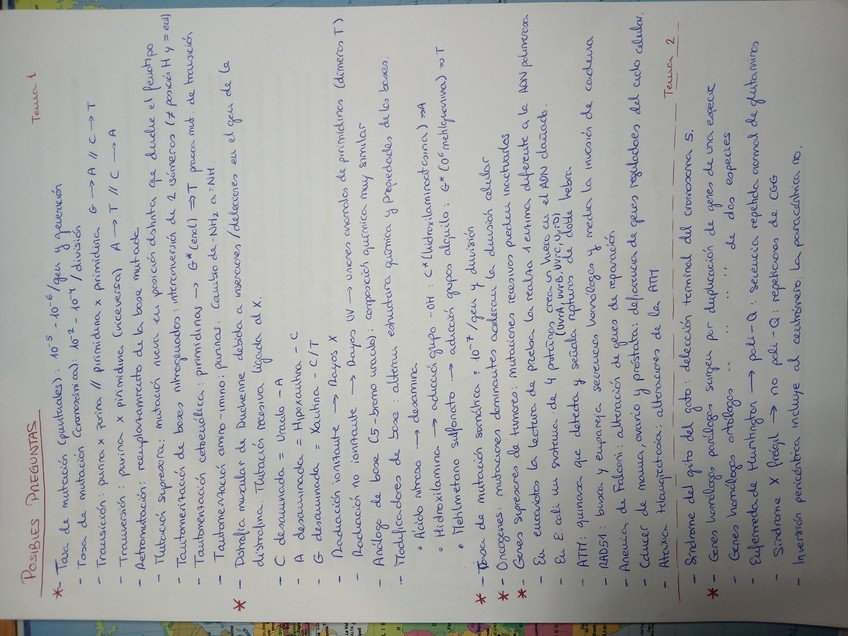 POSIBLES PREGUNTAS
Tema 1
* - Tasa de mutación (puntuales): 10^-5 - 10^-6 /gen y generación
- Tasa de mutación (cromosómica): 10^-2 - 10^-4 /división
- Transición: purina x purina // pirimidina x pirimidina G → A // C → T
- Transversión: purina x pirimidina (viceversa) A → T // C → A
- Retromutación: reemplazamiento de la base mutada
- Mutación supresora: mutación nueva en posición distinta que devuelve el fenotipo
- Tautomerización de bases nitrogenadas: interconversión de 2 isómeros (≠ posición H y = en)
- Tautomerización cetoenólica: pirimidinas → G* (enol) ⇒ T provoca mut. de transición
- Tautomerización amino-imino: purinas: Cambio de -NH2 a =NH
* - Distrofia muscular de Duchenne debida a inserciones/deleciones en el gen de la
distrofina. Mutación recesiva ligada al X.
- C desaminada = Uracilo - A
- A desaminada = Hipoxantina - C
- G desaminada = Xantina - C/T
- Radiación ionizante → Rayos X
- Radiación no ionizante → Rayos UV → uniones anómalas de pirimidinas (dímeros T)
- Análogo de base (5-bromo uracilo): composición química muy similar
- Modificadores de base: alteran estructura química y propiedades de las bases.
• Ácido nitroso → desamina
• Hidroxilamina → adición grupo -OH: C* (hidroxilaminocitosina) ⇒ A
• Metilmetano sulfonato → adición grupos alquilo: G* (O6 metilguanina) ⇒ T
* - Tasa de mutación somática: 10^-7 /gen y división
* - Oncogenes: mutaciones dominantes aceleran la división celular
* - Genes supresores de tumores: mutaciones recesivas pierden inactivados
- En eucariotas la lectura de prueba la realiza 1 enzima diferente a la ADN polimerasa
- En E. coli un sistema de 4 proteínas crea un hueco en el ADN dañado.
(UvrA, UvrB, UvrC, UvrD)
- ATM: quinasa que detecta y señala rupturas de doble hebra
- RAD51: busca y empareja secuencias homólogas y media la invasión de cadena
- Anemia de Falconi: alteración de genes de reparación
- Cáncer de mama, ovario y próstata: deficiencia de genes reguladores del ciclo celular.
- Ataxia telangiectasia: alteraciones de la ATM
Tema 2
- Síndrome del grito del gato: delección terminal del cromosoma 5.
* - Genes homólogos parálogos surgen por duplicación de genes de una especie
- Genes homólogos ortólogos " " " " de dos especies
- Enfermedad de Huntington → poli-Q: secuencia repetida normal de glutaminas
- Síndrome X frágil → no poli-Q: repeticiones de CGG
- Inversión pericéntrica incluye al centrómero. La paracéntrica no.